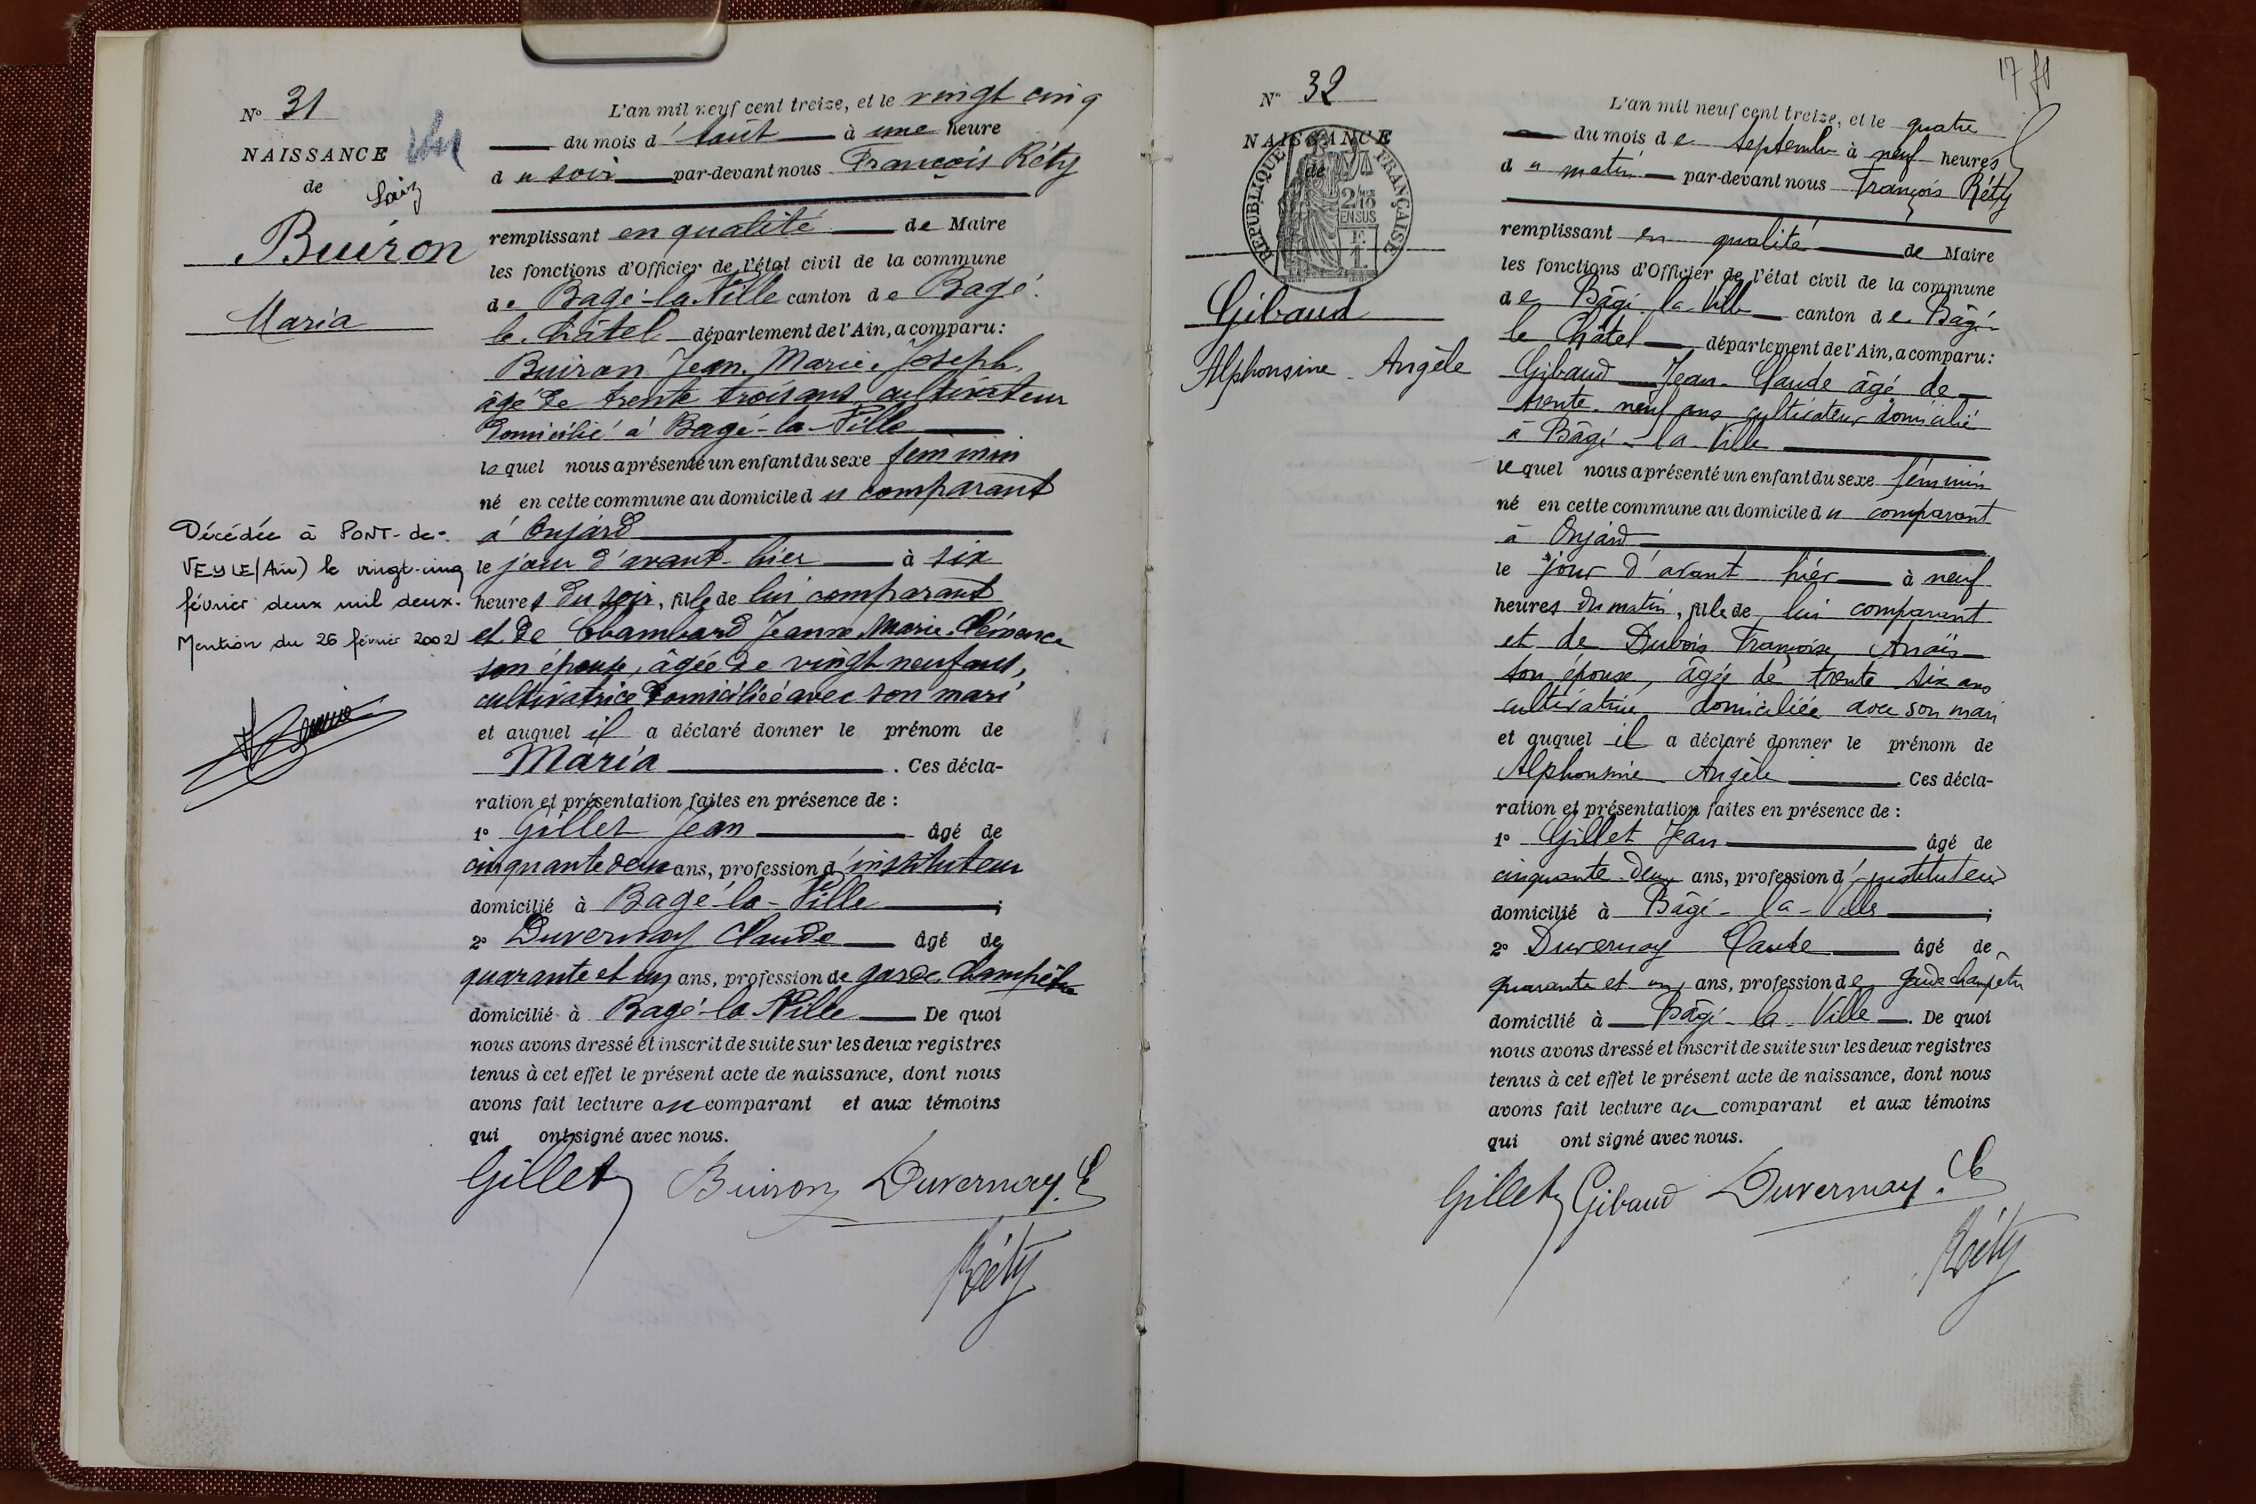 N° 31
NAISSANCE
de
Buiron
Maria
Décédée à PONT-de-
VEYLE (Ain) le vingt-cinq
février deux mil deux.
Mention du 26 février 2002
L'an mil neuf cent treize, et le vingt cinq
du mois d'août à une heure
du soir par-devant nous François Réty
remplissant en qualité de Maire
les fonctions d'Officier de l'état civil de la commune
de Bagé-la-Ville canton de Bagé-
le-Châtel département de l'Ain, a comparu :
Buiron Jean Marie Joseph,
âgé de trente trois ans, cultivateur
domicilié à Bagé-la-Ville
lequel nous a présenté un enfant du sexe féminin
né en cette commune au domicile du comparant
à Onjard
le jour d'avant-hier à six
heures du soir, fille de lui comparant
et de Chambard Jeanne Marie Clémence
son épouse, âgée de vingt neuf ans,
cultivatrice domiciliée avec son mari
et auquel il a déclaré donner le prénom de
Maria . Ces décla-
ration et présentation faites en présence de :
1° Gillet Jean âgé de
cinquante deux ans, profession d'instituteur
domicilié à Bagé-la-Ville ;
2° Duvernay Claude âgé de
quarante et un ans, profession de garde champêtre
domicilié à Bagé-la-Ville De quoi
nous avons dressé et inscrit de suite sur les deux registres
tenus à cet effet le présent acte de naissance, dont nous
avons fait lecture au comparant et aux témoins
qui ont signé avec nous.
Gillet Buiron Duvernay Cl
Réty
17
N° 32
NAISSANCE
de
RÉPUBLIQUE FRANÇAISE
2/10
EN SUS
Gibaud
Alphonsine Angèle
L'an mil neuf cent treize, et le quatre
du mois de septembre à neuf heures
du matin par-devant nous François Réty
remplissant en qualité de Maire
les fonctions d'Officier de l'état civil de la commune
de Bâgé-la-Ville canton de Bâgé-
le Châtel département de l'Ain, a comparu :
Gibaud Jean-Claude âgé de
trente-neuf ans cultivateur domicilié
à Bâgé-la-Ville
lequel nous a présenté un enfant du sexe féminin
né en cette commune au domicile du comparant
à Onjard
le jour d'avant hier à neuf
heures du matin, fille de lui comparant
et de Dubois Françoise Anaïs
son épouse, âgée de trente six ans
cultivatrice, domiciliée avec son mari
et auquel il a déclaré donner le prénom de
Alphonsine Angèle Ces décla-
ration et présentation faites en présence de :
1° Gillet Jean âgé de
cinquante-deux ans, profession d'instituteur
domicilié à Bâgé-la-Ville ;
2° Duvernay Claude âgé de
quarante et un ans, profession de garde champêtre
domicilié à Bâgé-la-Ville . De quoi
nous avons dressé et inscrit de suite sur les deux registres
tenus à cet effet le présent acte de naissance, dont nous
avons fait lecture au comparant et aux témoins
qui ont signé avec nous.
Gillet Gibaud Duvernay Cl
Réty